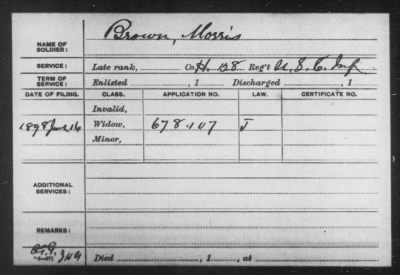 Brown, Morris
NAME OF
SOLDIER:
SERVICE: Late rank, Co. H. 128 Reg't U. S. C. Inf
TERM OF
SERVICE: Enlisted , 1 Discharged , 1
DATE OF FILING. CLASS. APPLICATION NO. LAW. CERTIFICATE NO.
Invalid,
1898 Widow, 678.107 J
Minor,
ADDITIONAL
SERVICES:
REMARKS:
Died , 1 , at